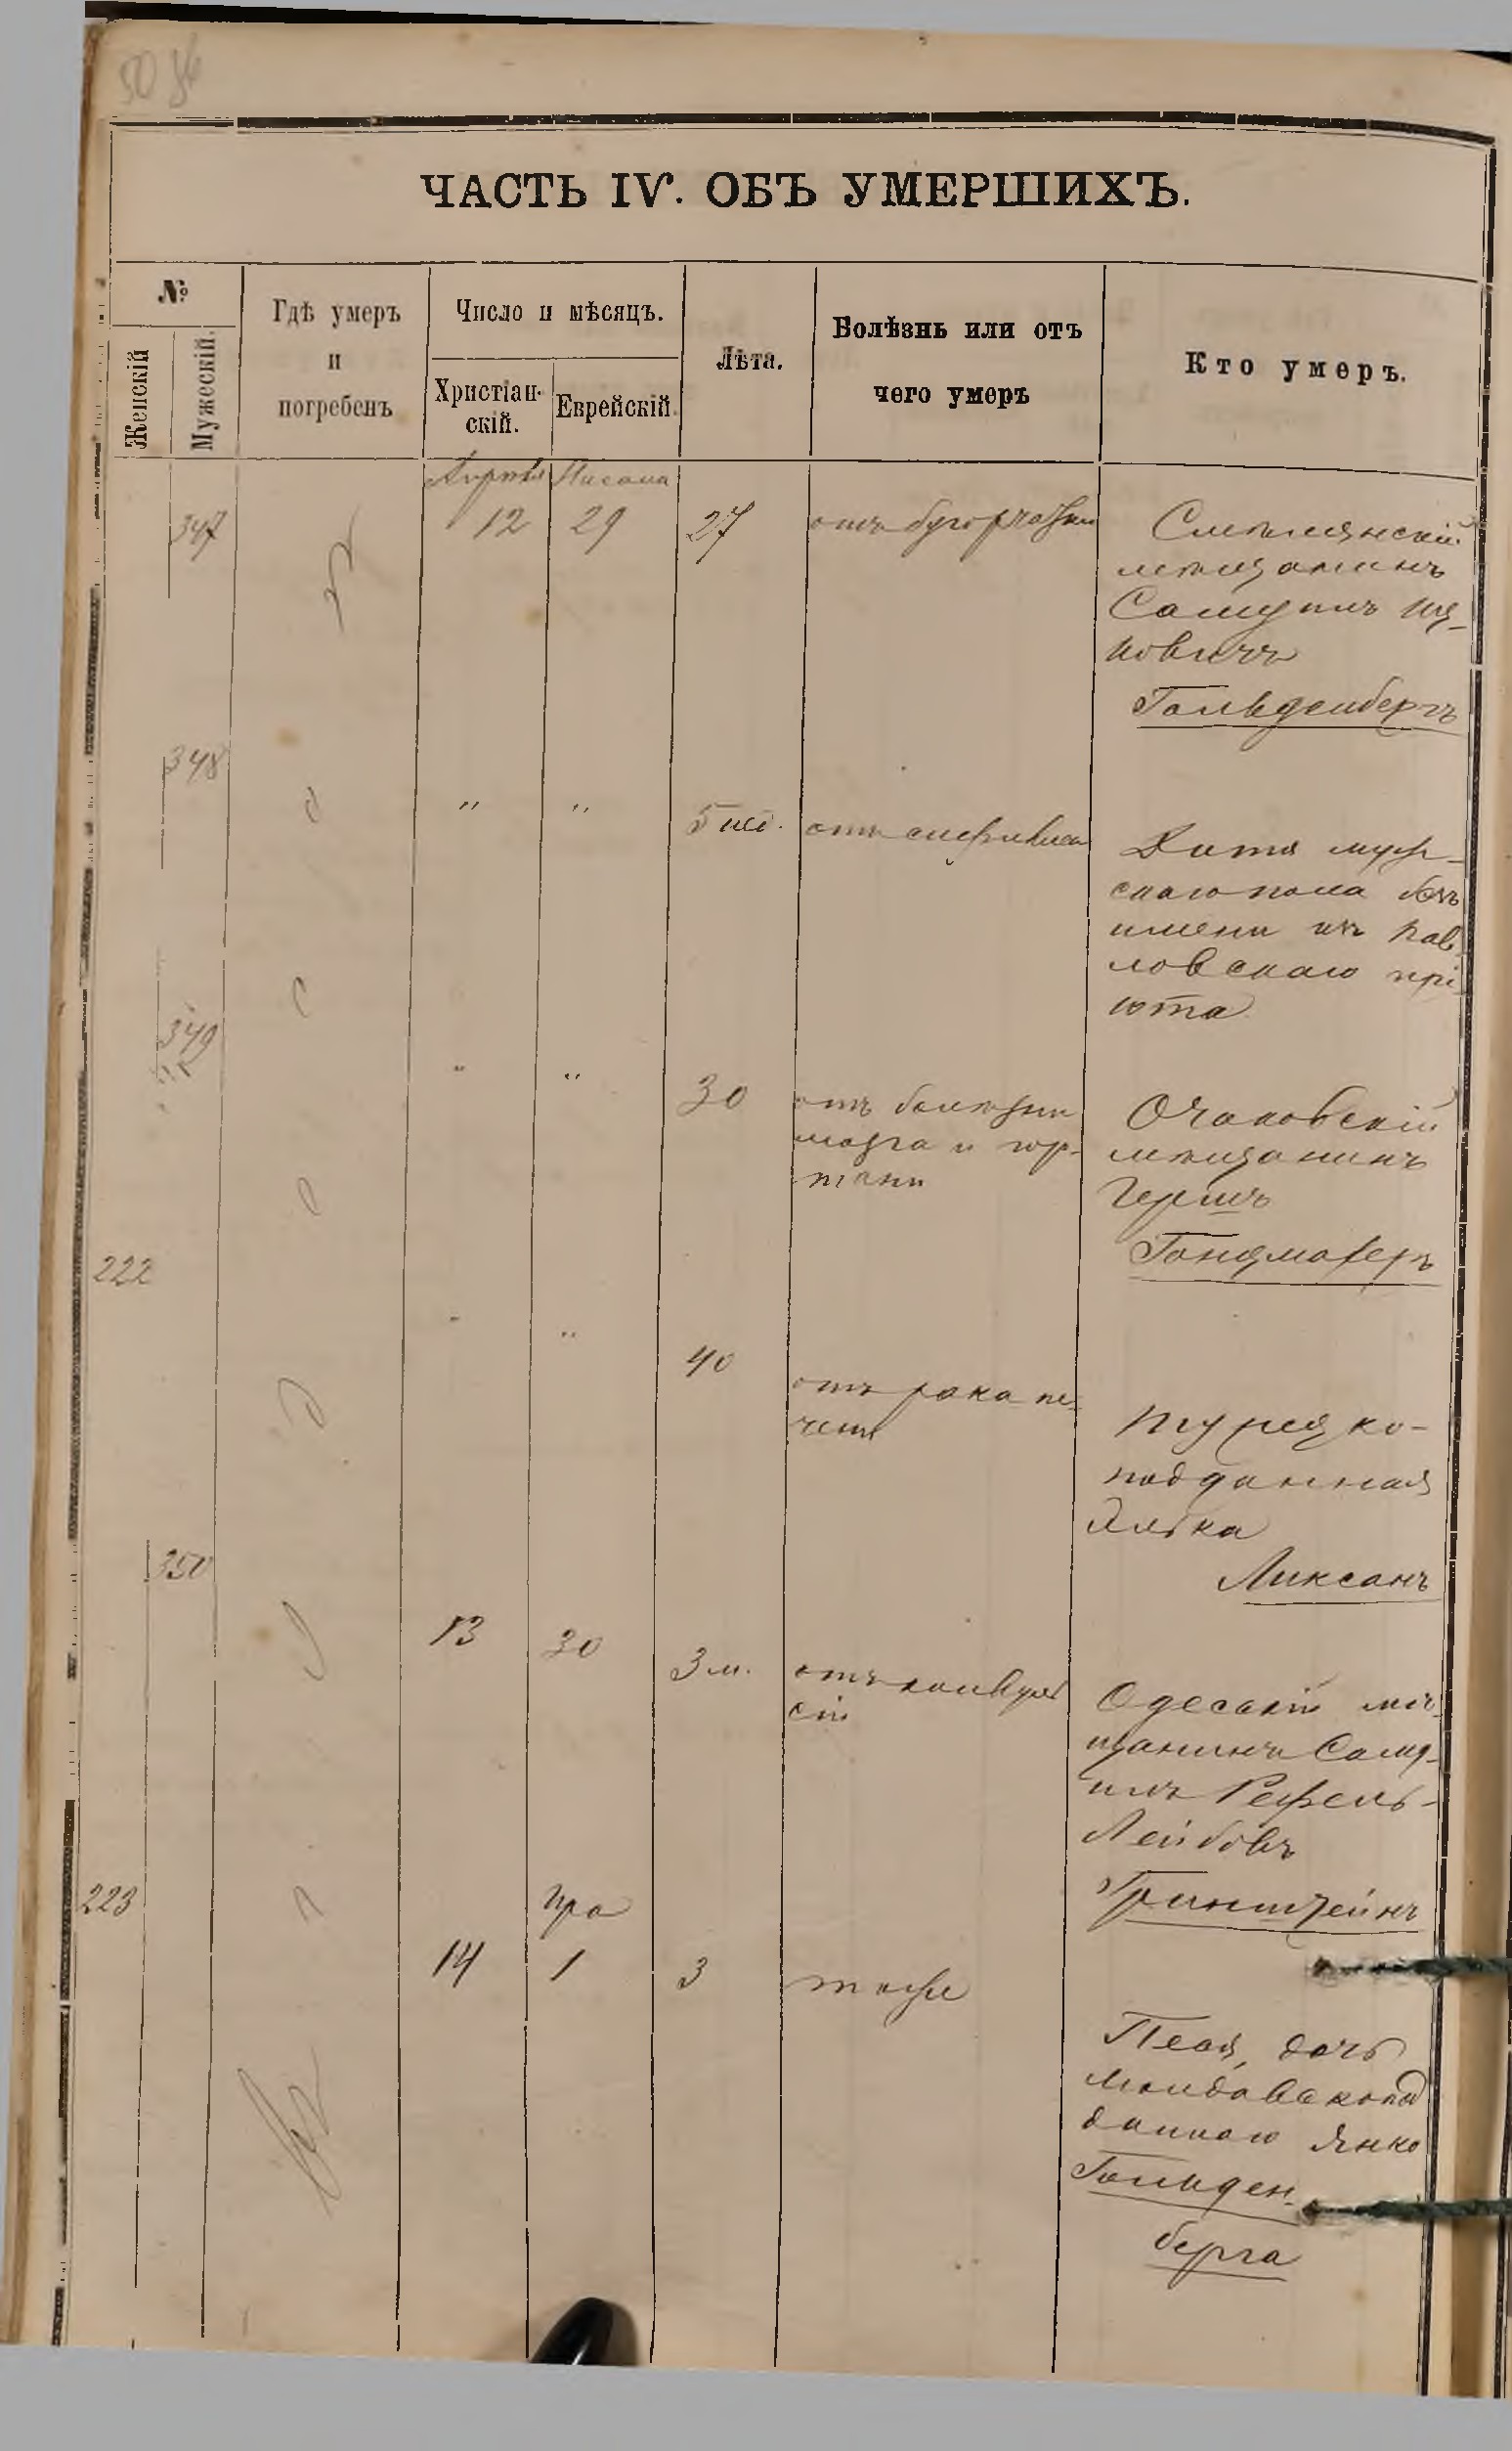 50
ЧАСТЬ IV. ОБЪ УМЕРШИХЪ.
№
Женскій
Мужескій.
Гдѣ умеръ
и
погребенъ
Число и мѣсяцъ.
Христіан-
скій.
Еврейскій.
Лѣта.
Болѣзнь или отъ
чего умеръ
Кто умеръ.
Апрѣля Нисана
347 12 29 27 отъ бугорчатки
мѣщанинъ
Самуилъ Иц-
ковичъ
Гольденбергъ
348 " " 5 нед. отъ
Дитя муж-
скаго пола безъ
имени изъ Пав-
ловскаго прі-
юта
349 " " 30 отъ болѣзни
мозга и гор-
тани
Очаковскій
мѣщанинъ
Гершъ
Гандмахеръ
222 " " 40 отъ рака пе-
чени
Турецко-
подданная
Ликсанъ
350 13 30 3 м. отъ конвуль
сій
Одесскій мѣ-
щанинъ Саму-
илъ Рефель-
Лейбовъ
Гринштейнъ
223 Іяра
14 1 3 тоже
Песя, дочь
молдавскопод
даннаго Янко
Гольден-
берга